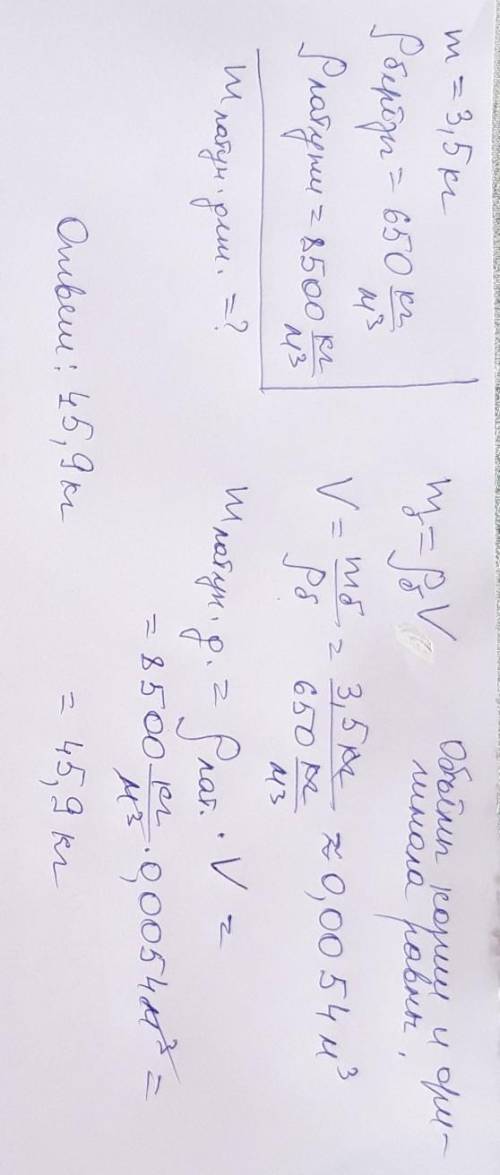 m = 3,5 кг
ρ берёзы = 650 кг/м³
ρ латуни = 8500 кг/м³
m латун. дет. = ?
Объёмы копии и ори-
гинала равны.
m б = ρ б V
V = m б / ρ б = 3,5 кг / 650 кг/м³ ≈ 0,0054 м³
m латун. д. = ρ лат. · V =
= 8500 кг/м³ · 0,0054 м³ =
= 45,9 кг
Ответ: 45,9 кг